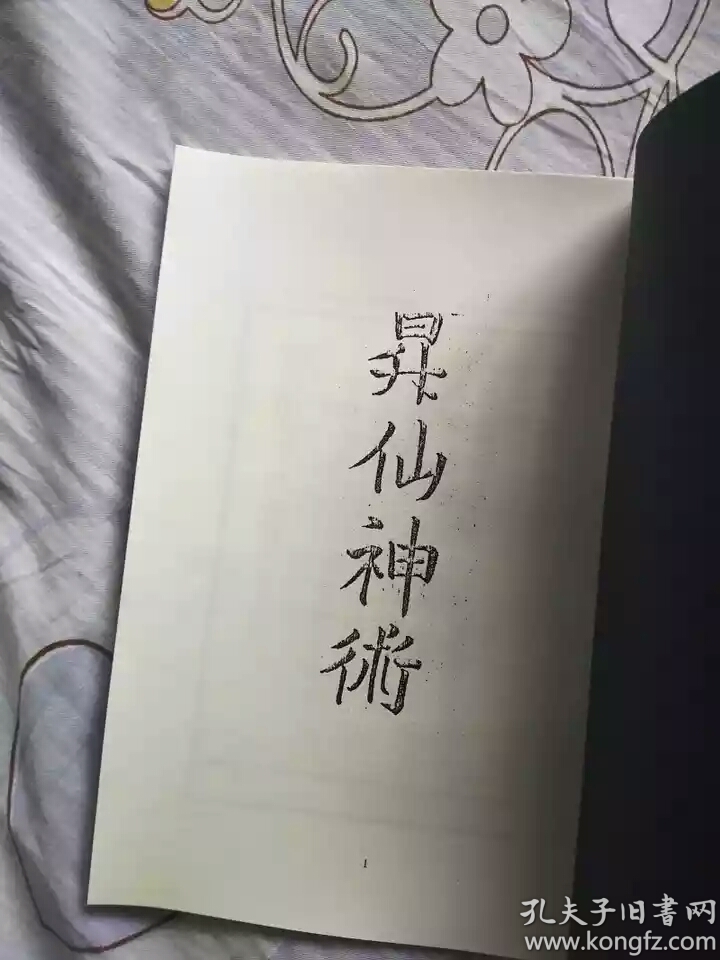 昇仙神術
1
孔夫子旧書网
www.kongfz.com